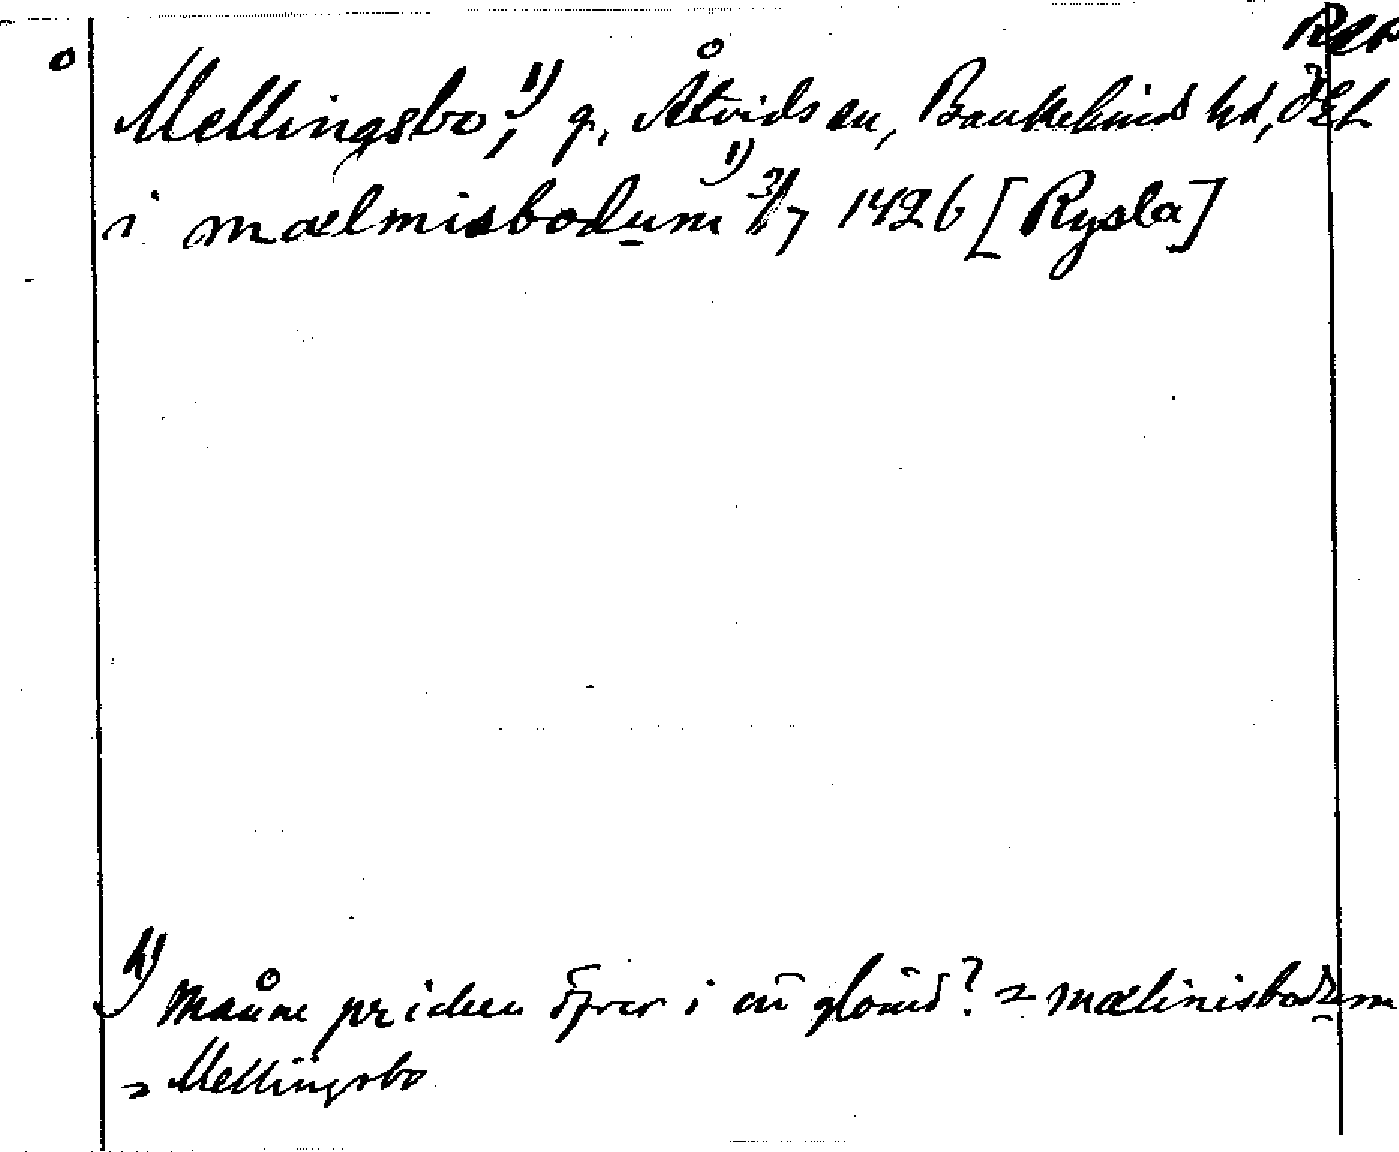 Rep
Mellingsbo,¹⁾ g, Åtvids sn, Bankekinds hd, Ögl
i mælmisbodum¹⁾ 3/7 1426 [Rysla]
1) Månne pricken över i en glömd? = mælinisbodum
= Mellingsbo